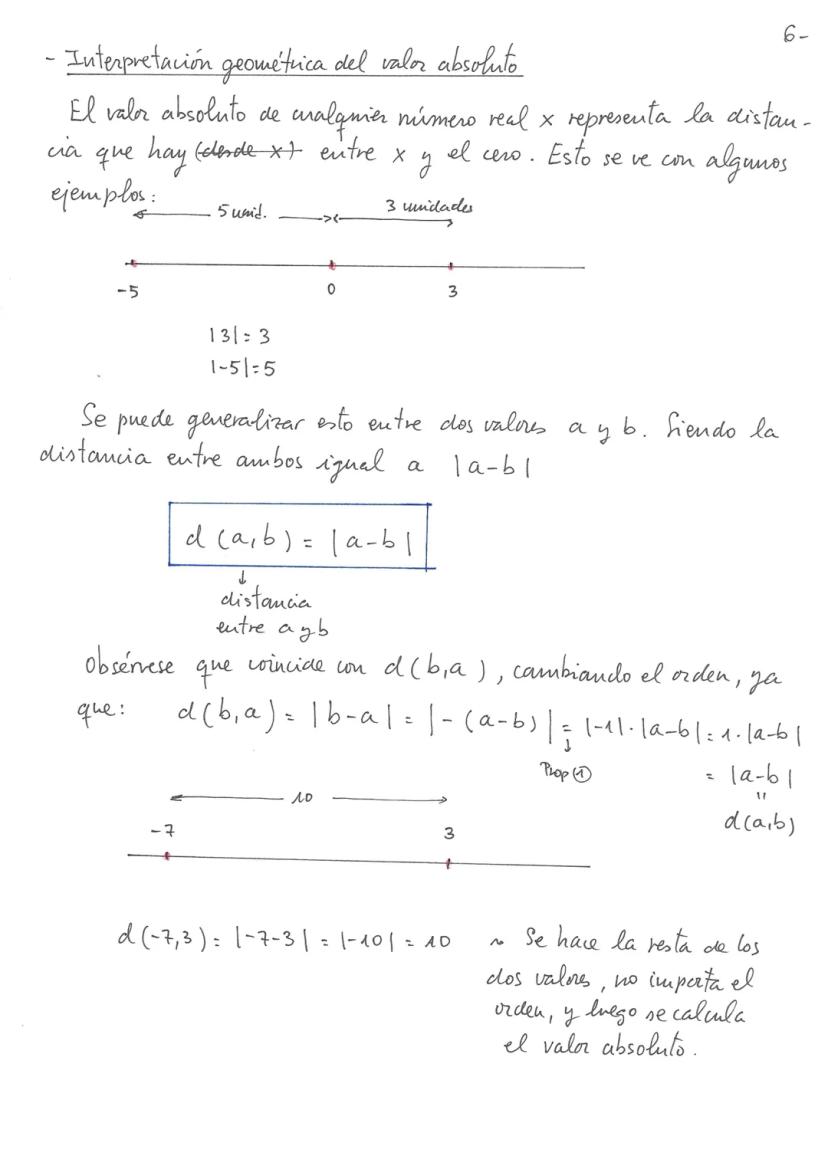 6-
- Interpretación geométrica del valor absoluto
El valor absoluto de cualquier número real x representa la distan-
cia que hay (desde x) entre x y el cero. Esto se ve con algunos
ejemplos:
5 unid. 3 unidades
-5 0 3
|3| = 3
|-5| = 5
Se puede generalizar esto entre dos valores a y b. Siendo la
distancia entre ambos igual a |a-b|
d (a,b) = |a-b|
↓
distancia
entre a y b
Obsérvese que coincide con d(b,a), cambiando el orden, ya
que: d(b,a) = |b-a| = |-(a-b)| = |-1|·|a-b| = 1·|a-b|
↓
Prop ① = |a-b|
"
d(a,b)
10
-7 3
d(-7,3) = |-7-3| = |-10| = 10 ~ Se hace la resta de los
dos valores, no importa el
orden, y luego se calcula
el valor absoluto.